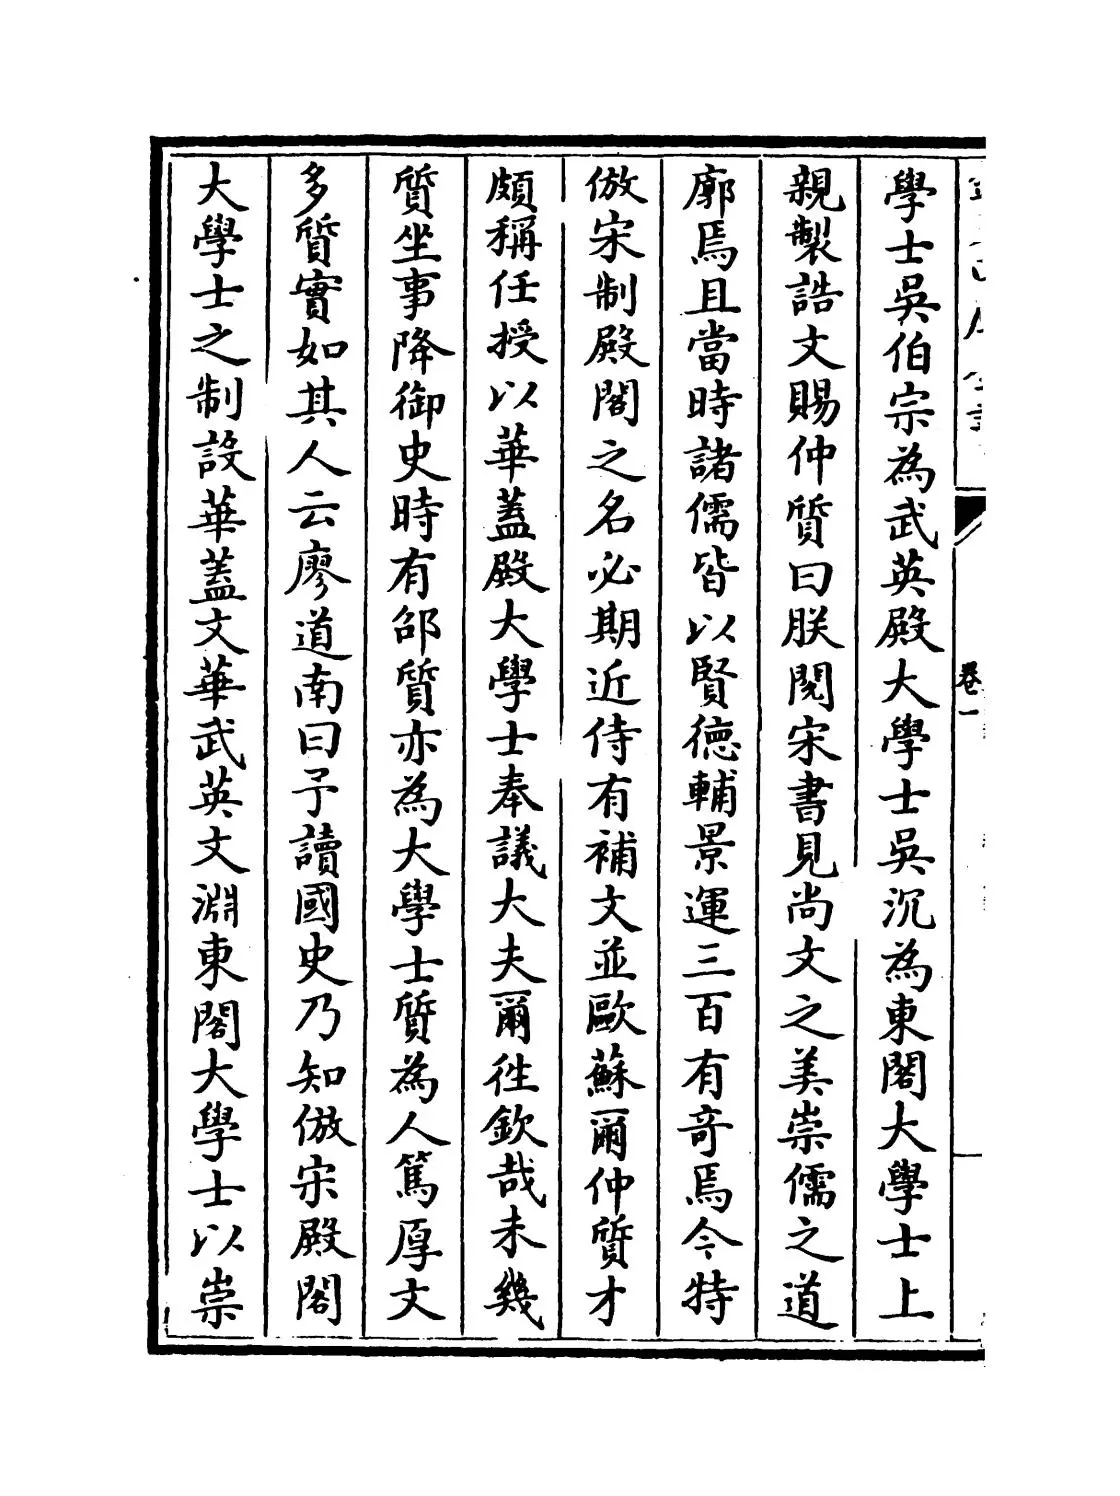 學士吳伯宗為武英殿大學士吳沉為東閣大學士上
親製誥文賜仲質曰朕閱宋書見尚文之美崇儒之道
廓焉且當時諸儒皆以賢德輔景運三百有奇焉今特
倣宋制殿閣之名必期近侍有補文並歐蘇爾仲質才
頗稱任授以華蓋殿大學士奉議大夫爾徃欽哉未幾
質坐事降御史時有邵質亦為大學士質為人篤厚文
多質實如其人云廖道南曰予讀國史乃知倣宋殿閣
大學士之制設華蓋文華武英文淵東閣大學士以崇
卷一